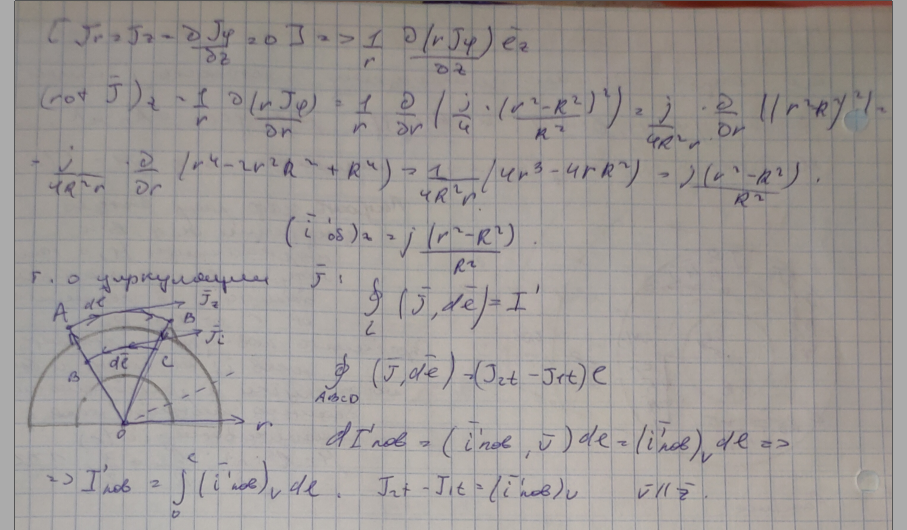 [ Jr = Jz = ∂Jφ/∂z = 0 ] => 1/r ∂(rJφ)/∂z ēz
(rot J̄)z = 1/r ∂(rJφ)/∂r = 1/r ∂/∂r ( j/4 · (r²-R²)²/R² ) = j/4R²r · ∂/∂r ((r²-R²)²) =
= j/4R²r · ∂/∂r (r⁴ - 2r²R² + R⁴) = 1/4R²r (4r³ - 4rR²) = j (r²-R²)/R² .
(ī'об)z = j (r²-R²)/R² .
т. о циркуляции J̄ :
∮L (J̄, dē) = I'
A dē J̄2 B
J̄1
B dē C
0 r
∮ABCD (J̄, dē) = (J2t - J1t) l
dI'пов = (ī'пов, ν̄) dl = (ī'пов)ν dl =>
=> I'пов = ∫0 (ī'пов)ν dl . J2t - J1t = (ī'пов)ν ν̄ || z̄ .